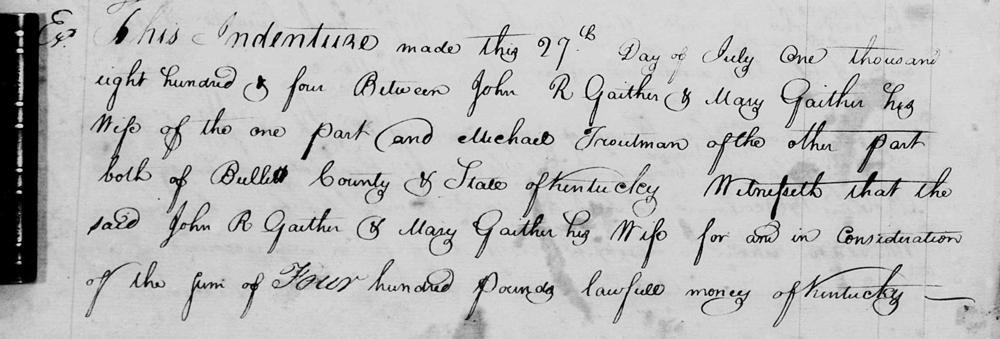 Ex. This Indenture made this 27.th Day of July One thousand
eight hundred & four Between John R Gaither & Mary Gaither his
Wife of the one part and Michael Troutman of the other part
both of Bullitt County & State of Kentucky Witnesseth that the
said John R Gaither & Mary Gaither his Wife for and in Consideration
of the sum of Four hundred pounds lawfull money of Kentucky —